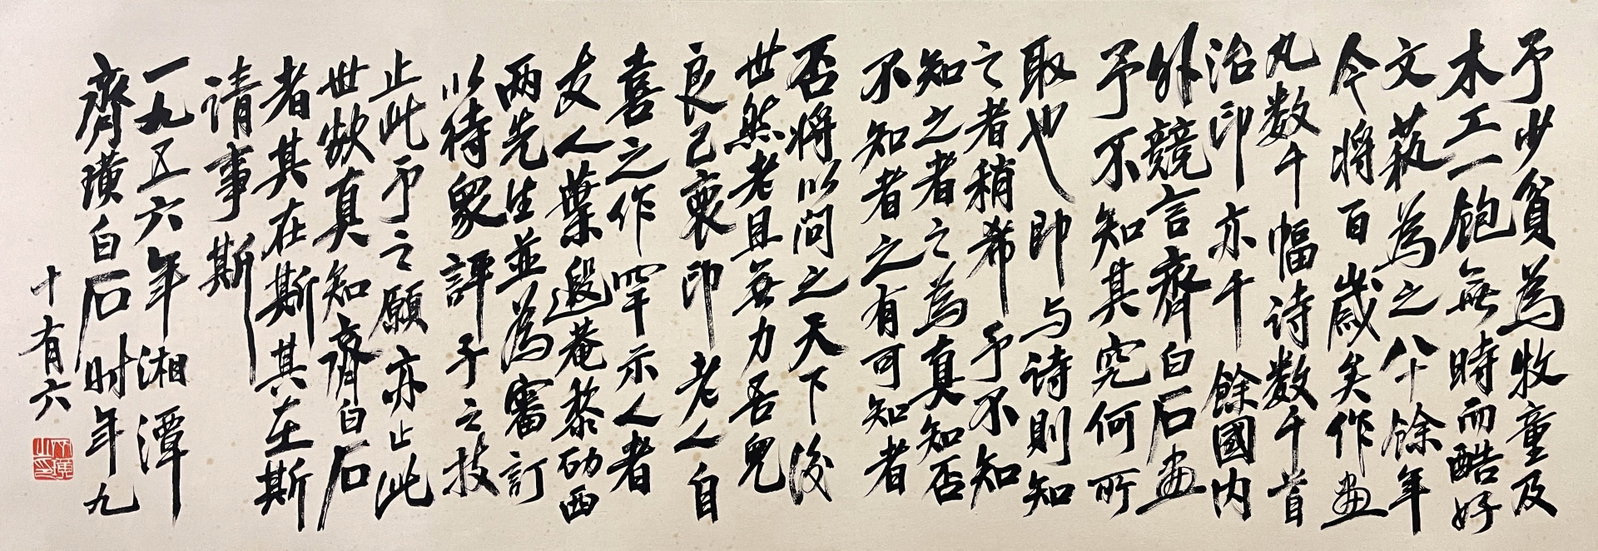 予少贫為牧童及
木工一飽無時而酷好
文藝為之八十餘年
今將百歲矣作畫
凡数千幅诗数千首
治印亦千餘國内
外競言齊白石畫
予不知其究何所
取也即与诗則知
之者稍希予不知
知之者之為真知否
不知者之有可知者
否將以问之天下後
世然老且無力吾兒
良已衷印老人自
喜之作罕示人者
友人葉遐菴黎劭西
两先生並為審訂
以待衆評予之技
止此予之願亦止此
世欲真知齊白石
者其在斯其在斯
请事斯
一九五六年湘潭
齊璜白石时年九
十有六